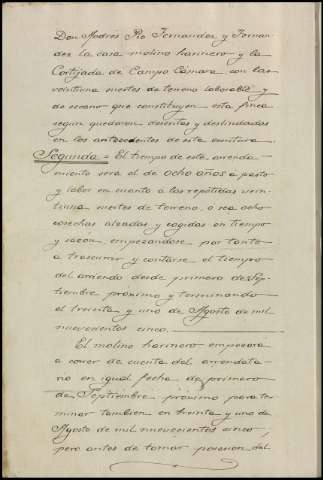 Don Andrés Pio Fernandez y Fernan-
dez la casa molino harinero y la
Cortijada de Campo Cámara con las
veintiuna suertes de terreno laborable y
de secano que constituyen esta finca
segun quedaron descritas y deslindadas
en los antecedentes de esta escritura.
Segunda = El tiempo de este arrenda-
miento será el de ocho años a pasto
y labor en cuanto a las repetidas vein-
tiuna suertes de terreno, ó sea ocho
cosechas alzadas y cogidas en tiempo
y sazon, empezandose por tanto
a trascurrir y contarse el tiempo
del arriendo desde primero de Sep-
tiembre próximo y terminando
el treinta y uno de Agosto de mil
nuevecientos cinco.
El molino harinero empezara
a correr de cuenta del arrendata-
rio en igual fecha de primero
de Septiembre próximo para ter-
minar tambien en treinta y uno de
Agosto de mil nuevecientos cinco;
pero antes de tomar posesion del